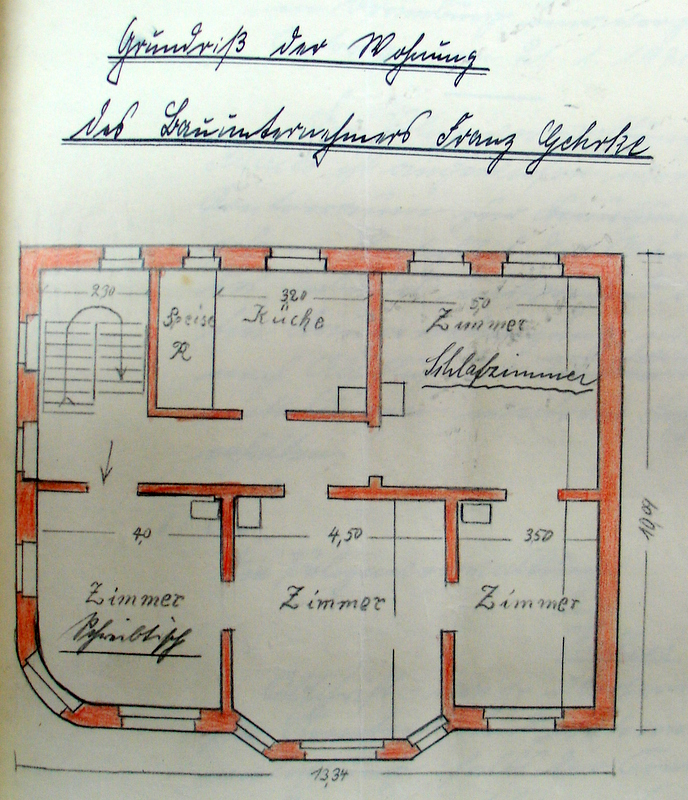 Grundriß der Wohnung
des Bauunternehmers Franz Gehrke
230
3,20
5,0
Speise
R
Küche
Zimmer
Schlafzimmer
4,0
4,50
3,50
10,09
Zimmer
Zimmer
Zimmer
Schreibtisch
13,34